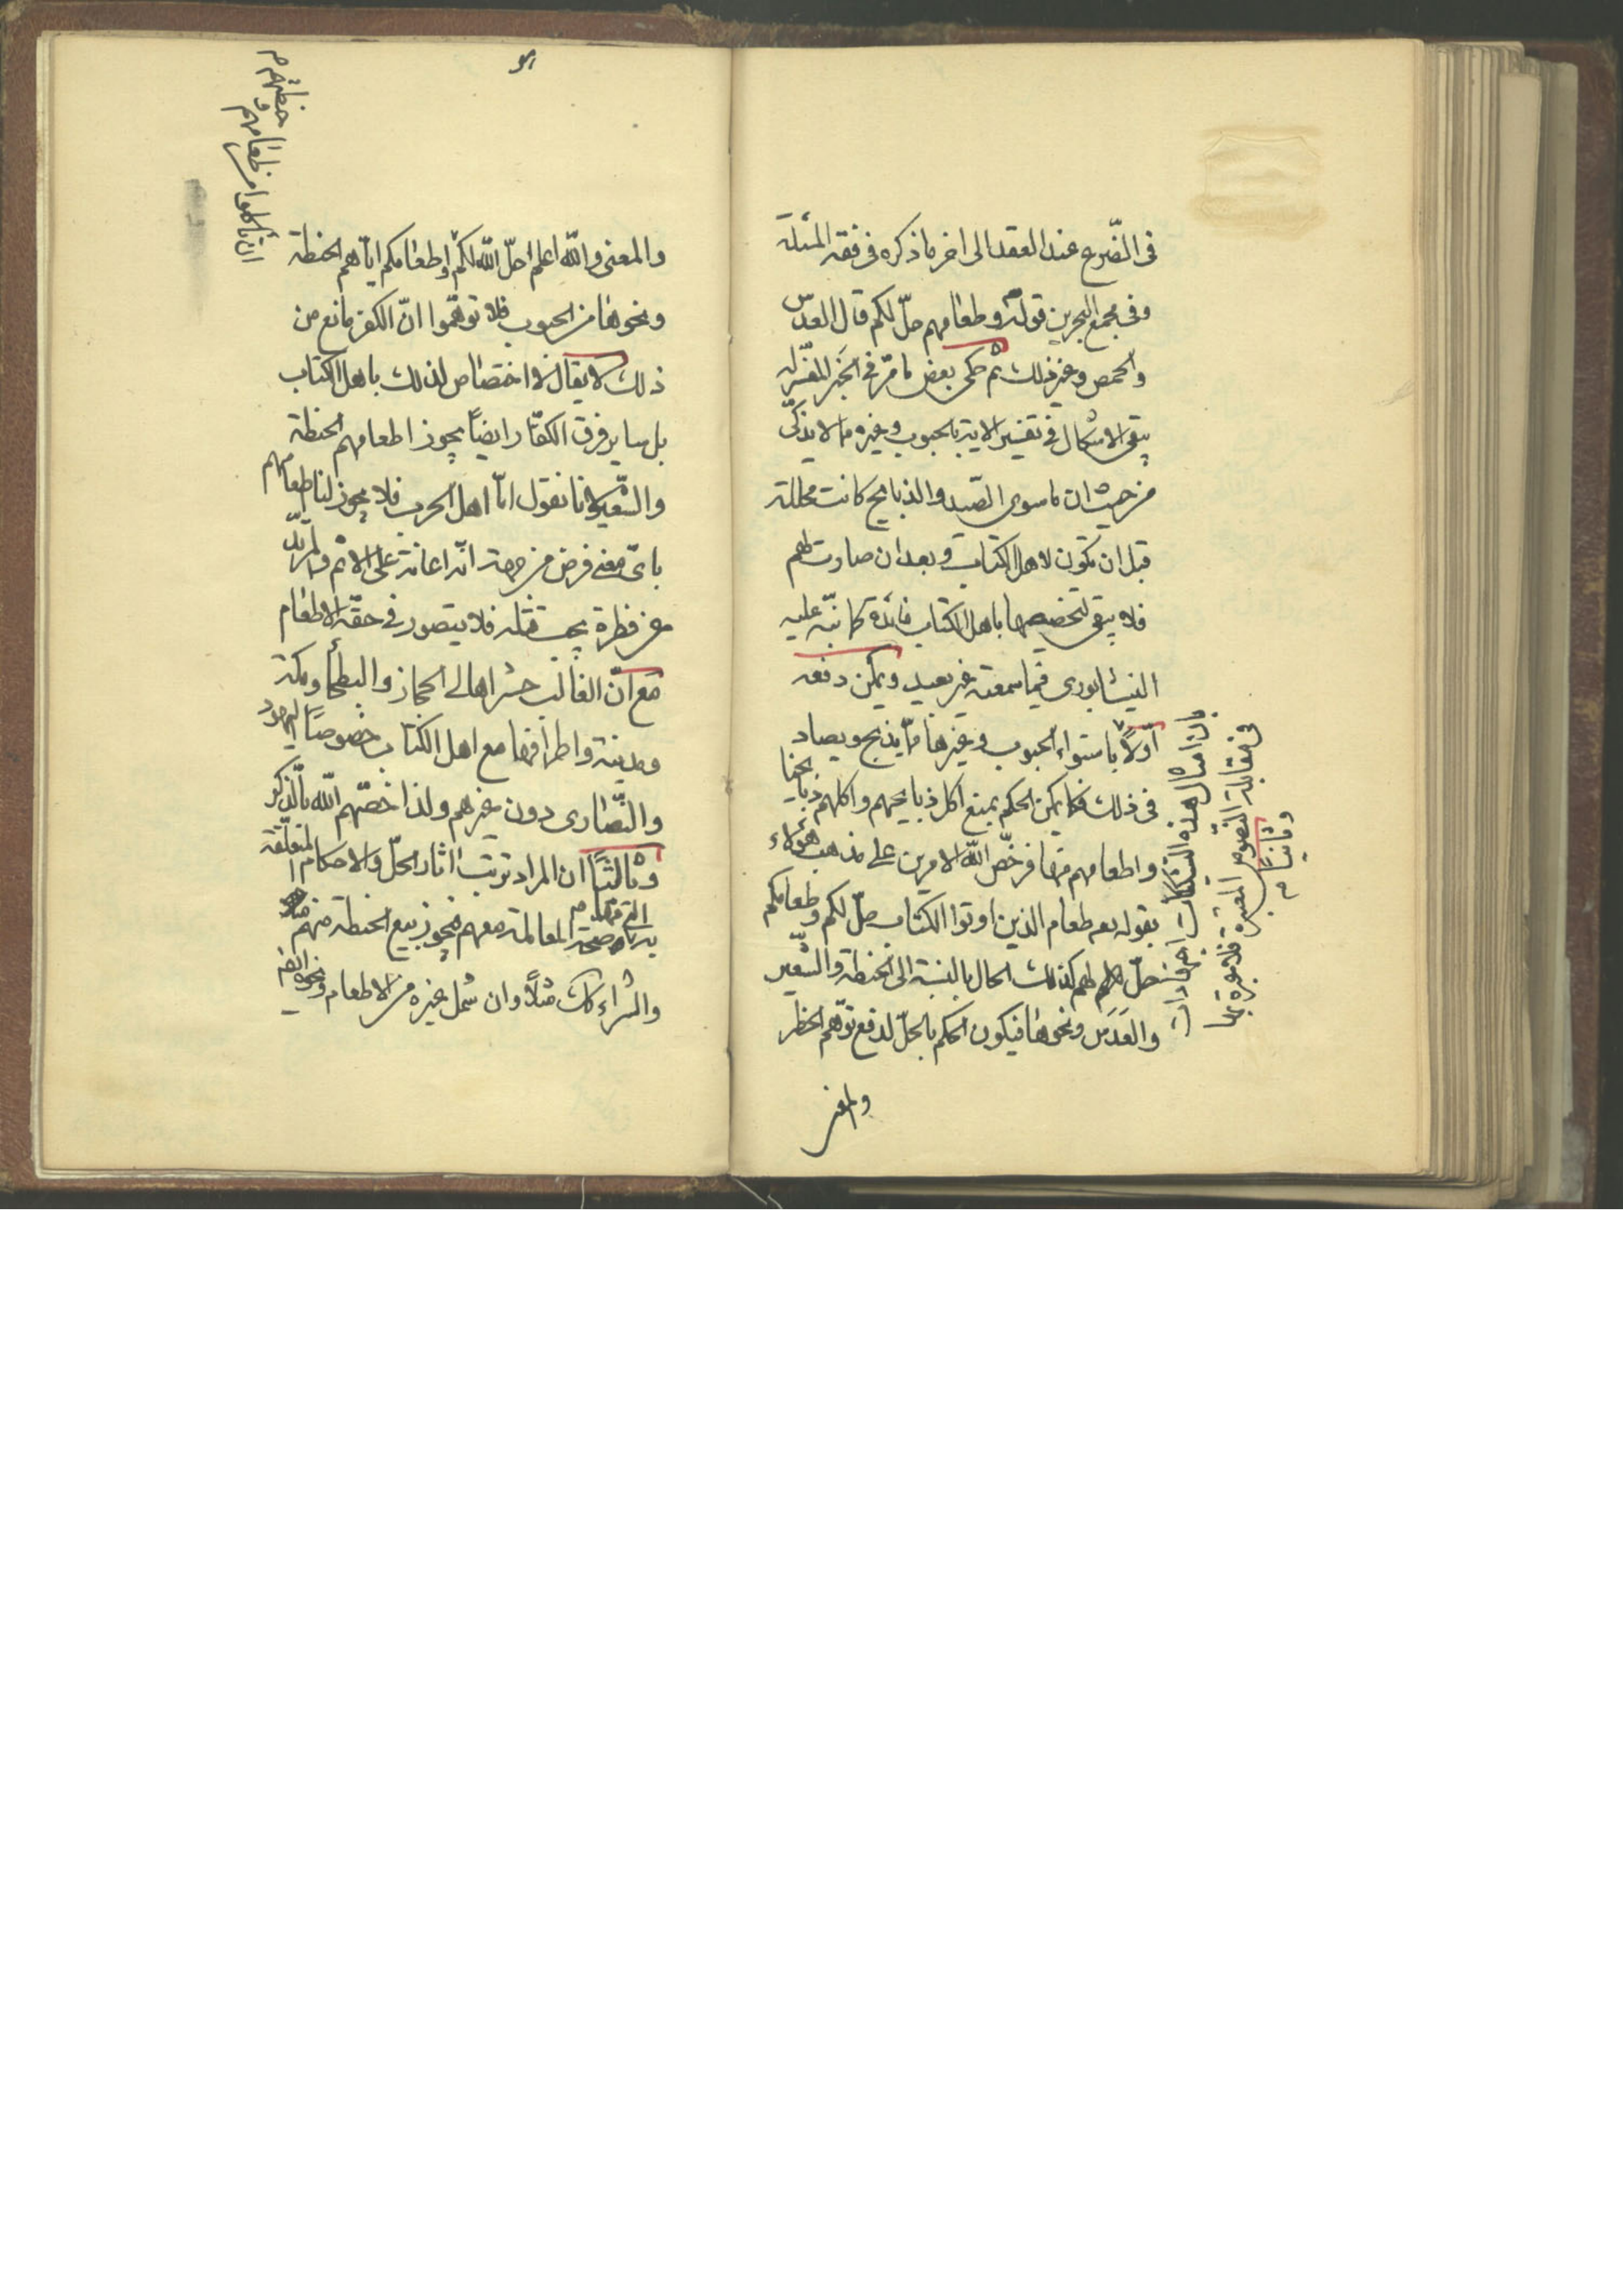 في الضرع عند العقد الى اخر ما ذكره في فقه المسئلة
وفي مجمع البحرين قوله وطعامهم حلّ لكم قال العدس
والحمص وغير ذلك ثم حكى بعض ما مرّ في الخبر المفسّر له
يبقى الاشكال في تفسير الاية بالحبوب وغيره مما لا يذكّى
من حيث ان ما سوى الصّيد والذبايح كانت محللة
قبل ان تكون لاهل الكتاب وبعد ان صارت لهم
فلا يبقى لتخصيصها باهل الكتاب فائدة كما نبّه عليه
النيشابورى فيما سمعته غير بعيد ويمكن دفعه
اوّلاً باستواء الحبوب وغيرها مما يذبح ويصاد
في ذلك فكما يمكن الحكم بمنع اكل ذبايحهم واكلهم ذبايحنا
واطعامهم منها فرخّص الله الامرين على مذهب هؤلاء
بقوله تعم طعام الذين اوتوا الكتاب حلّ لكم وطعامكم
حلّ لهم كذلك الحال بالنسبة الى الحنطة والشّعير
والعَدَس ونحوها فيكون الحكم بالحلّ لدفع توهّم الحظر
والمعنى
بان امثال هذه اجتهادات
في مقابلة النصوص المعتبرة فلا عبرة بها
وثانيا م
والمعنى والله اعلم احلّ الله لكم اطعامكم ايّاهم الحنطة
ونحوها من الحبوب فلا توهّموا انّ الكفر مانع من
ذلك لا يقال لا اختصاص لذلك باهل الكتاب
بل ساير فرق الكفّار ايضاً يجوز اطعامهم الحنطة
والشّعير لانا نقول امّا اهل الحرب فلا يجوز لنا اطعامهم
باىّ معنى فرض من جهة انّه اعانة على الاثم والمرتدّ
عن فطرة يجب قتله فلا يتصور في حقّه الاطعام
مع انّ الغالب حشر اهالى الحجاز والبطحاء ومكة
ومدينة واطرافها مع اهل الكتاب خصوصًا اليهود
والنّصارى دون غيرهم ولذا خصّهم الله بالذّكر
وثالثًا ان المراد ترتب اثار الحلّ والاحكام المتعلّقة
به من صحة المعاملة معهم فيجوز بيع الحنطة منهم
والشراء كك مثلًا وان شمل غيره من الاطعام ونحوه ايضا
ان تاكلوا من طعامهم و
حنطتهم م